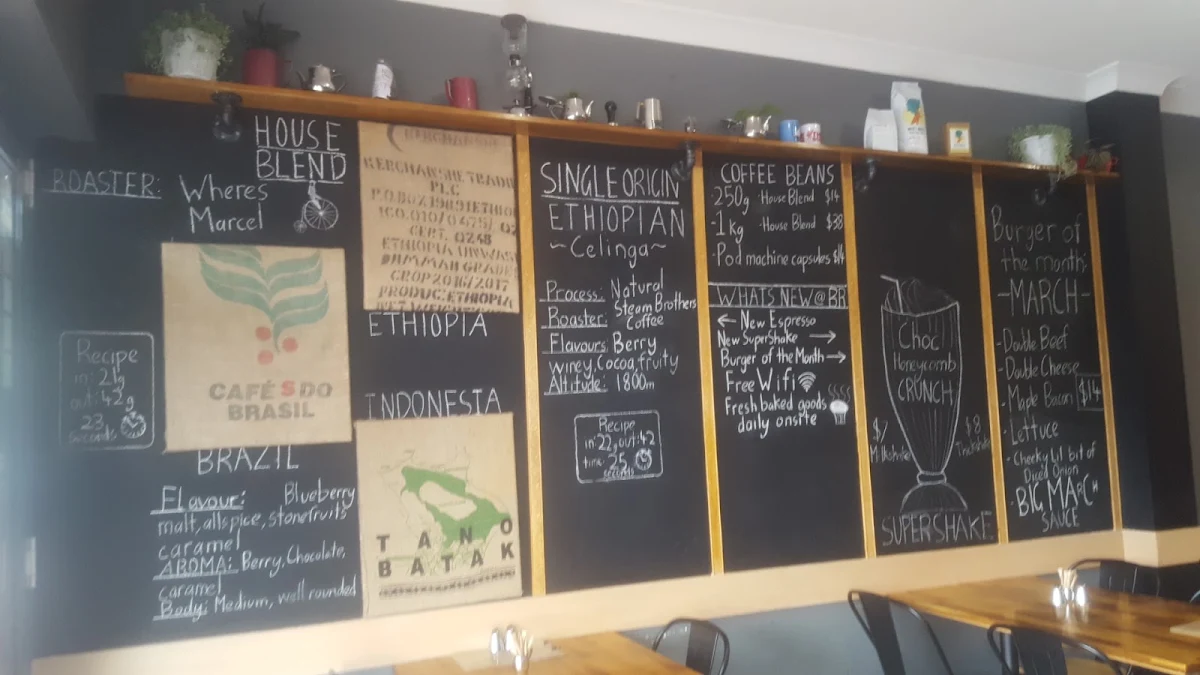 HOUSE
BLEND
ROASTER: Wheres
Marcel
CAFÉS DO
BRASIL
Recipe
in: 21g
out: 42g
23
seconds
BRAZIL
Flavour: Blueberry
malt, allspice, stonefruits
caramel
AROMA: Berry, Chocolate,
caramel
Body: Medium, well rounded
PLC
CERT. 0248
ETHIOPIA UNWAS
CROP 2016/2017
PRODUC: ETHIOPIA
ETHIOPIA
INDONESIA
TANO
BATAK
SINGLE ORIGIN
ETHIOPIAN
~Celinga~
Process: Natural
Roaster: Steam Brothers
Coffee
Flavours: Berry
winey, Cocoa, fruity
Altitude: 1800m
Recipe
in: 22g out: 42
time: 25
seconds
COFFEE BEANS
-250g -House Blend $14
-1kg -House Blend $38
-Pod machine capsules $14
WHATS NEW @ BR
← New Espresso
New SuperShake →
Burger of the Month →
Free Wifi
Fresh baked goods
daily onsite
Choc
Honeycomb
CRUNCH
$7
Milkshake
$8
Thickshake
SUPERSHAKE
Burger of
the month:
-MARCH-
-Double Beef
-Double Cheese
-Maple Bacon $14
-Lettuce
-Cheeky Lil bit of
Diced Onion
-BIG MARCH
SAUCE